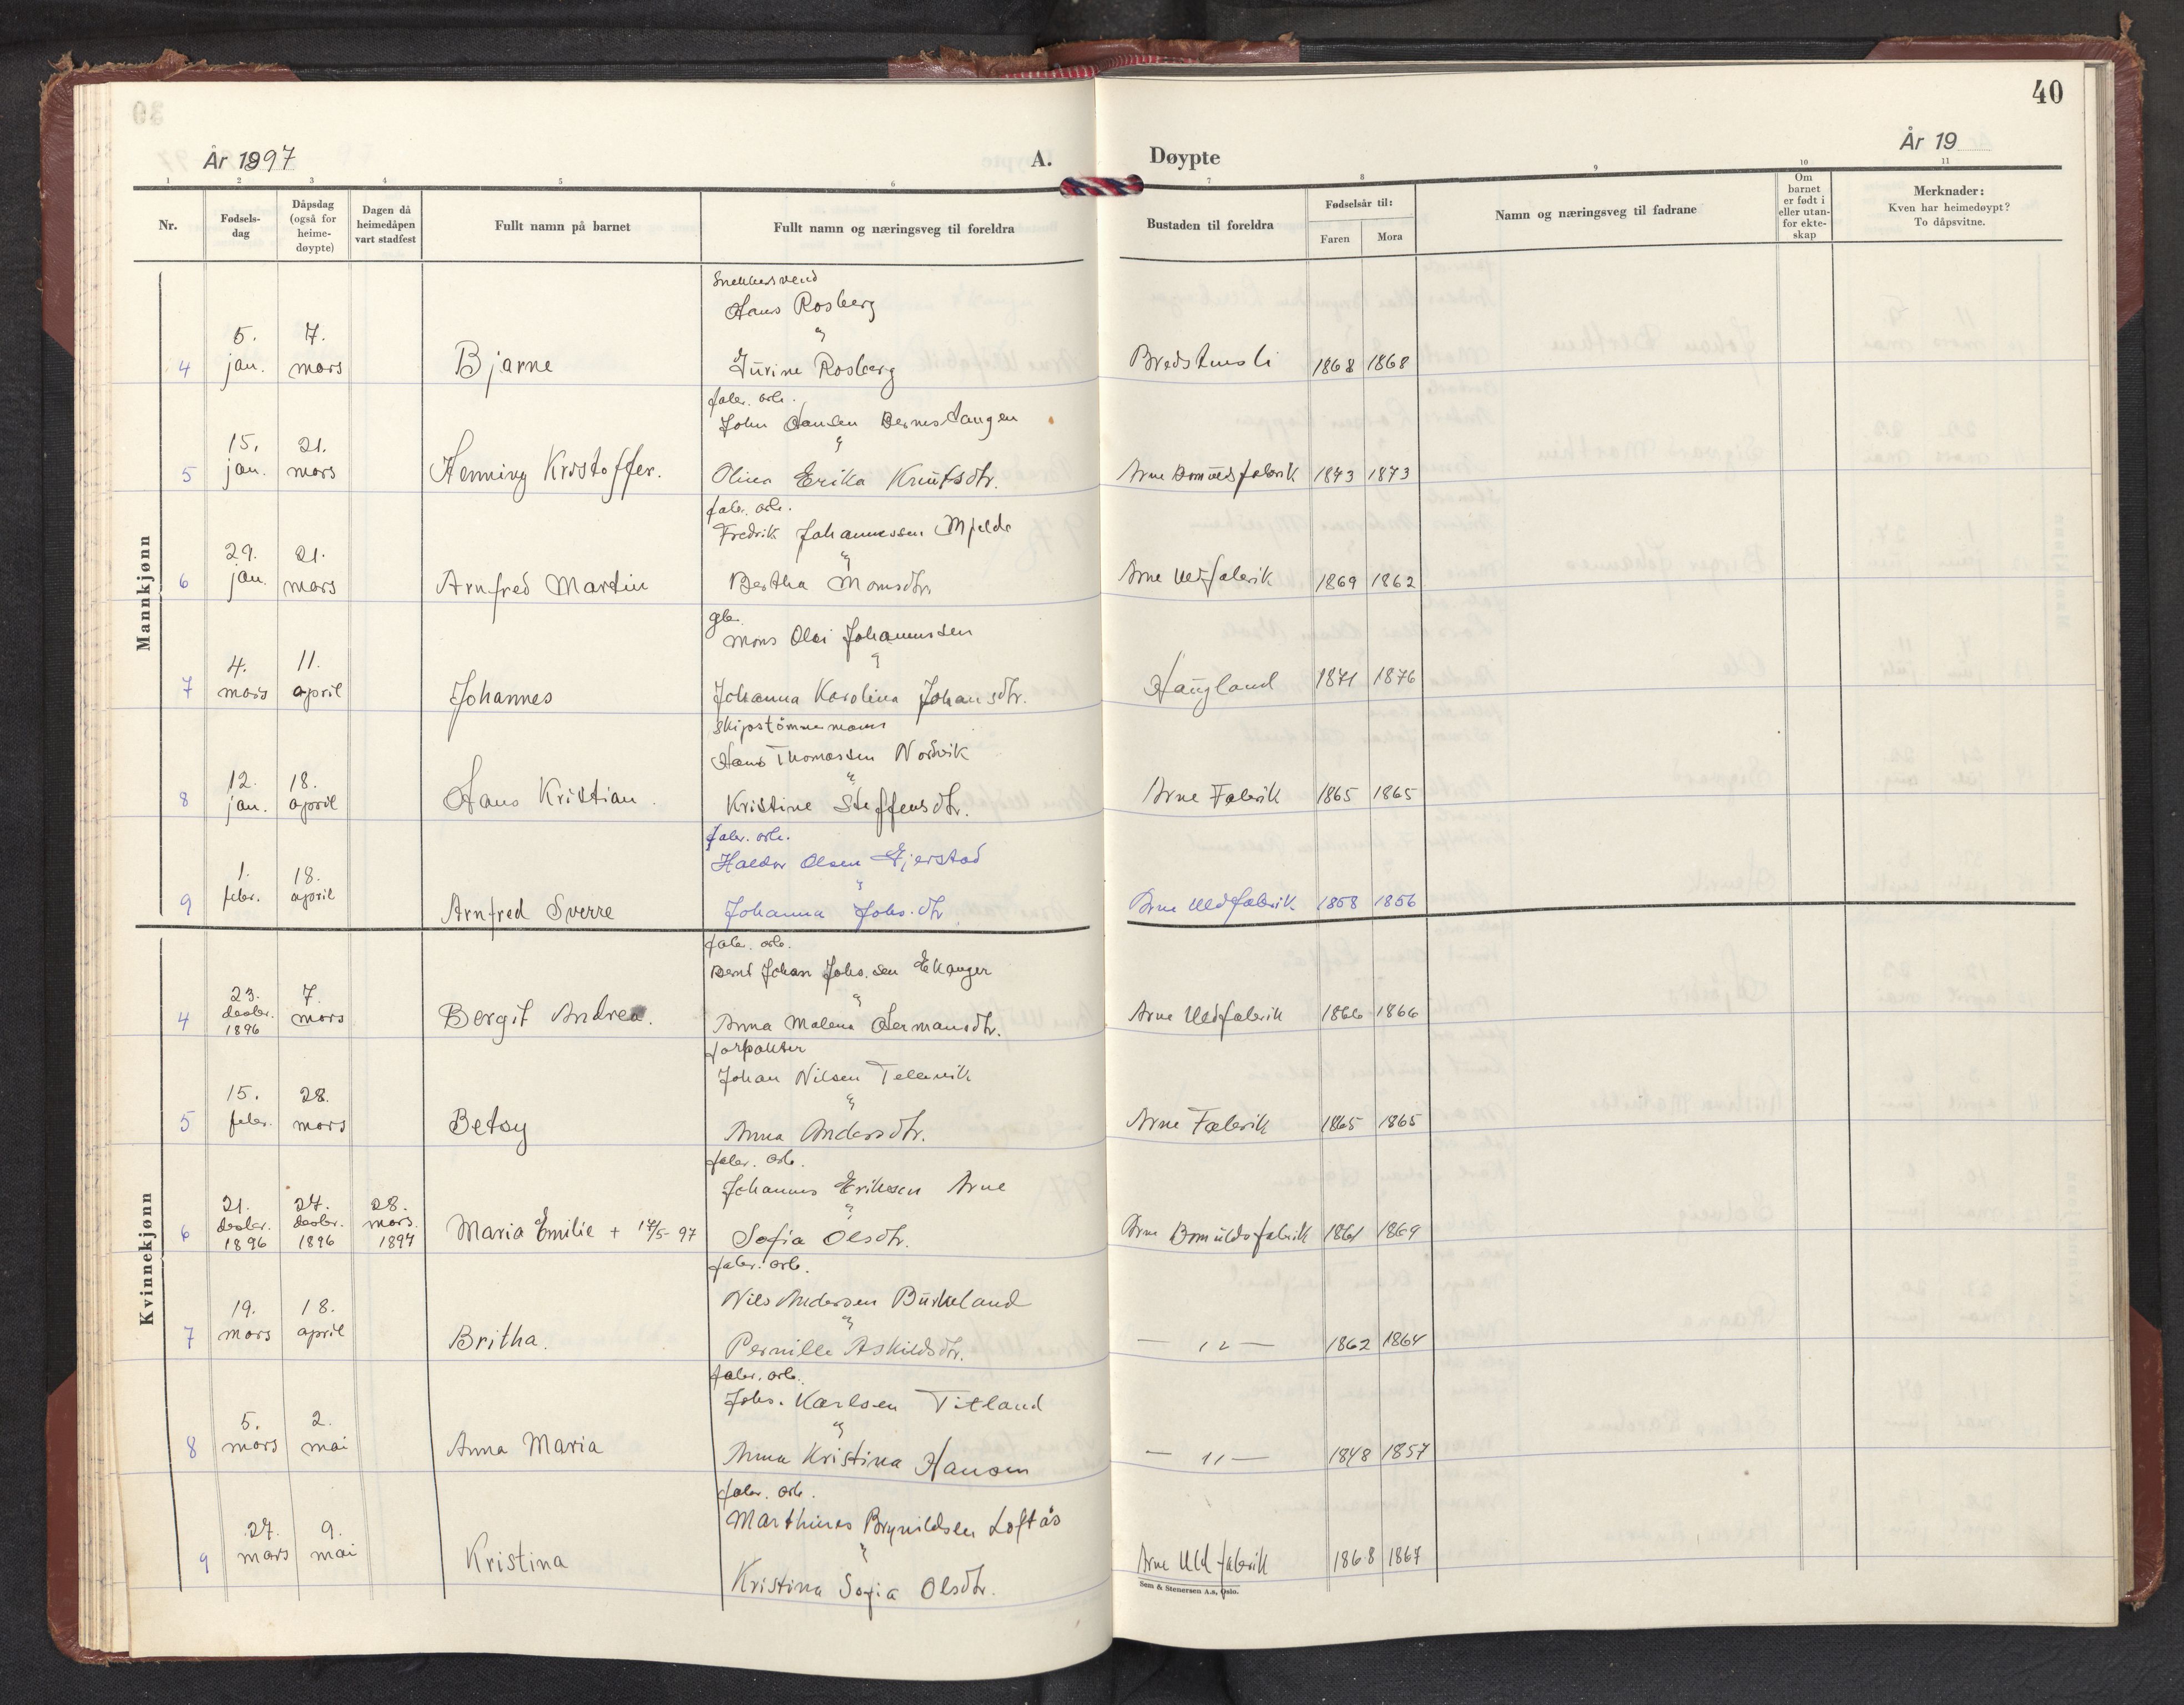 40
År 1897
A.
Døypte
År 19
1 2 3 4 5 6 7 8 9 10 11
Nr.
Fødsels-
dag
Dåpsdag
(også for
heime-
døypte)
Dagen då
heimedåpen
vart stadfest
Fullt namn på barnet
Fullt namn og næringsveg til foreldra
Bustaden til foreldra
Fødselsår til:
Faren Mora
Namn og næringsveg til fadrane
Om
barnet
er født i
eller utan-
for ekte-
skap
Merknader:
Kven har heimedøypt?
To dåpsvitne.
Mannkjønn
Snekkersvend
Hans Rosberg
5. 7.
4 jan. mars Bjarne Jürine Rosberg 1868 1868
fabr. arb.
John Hansen Bernestangen
15. 21.
5 jan. mars Henning Kristoffer. Olina Erika Knütsdtr. Arne Bomüldsfabrik 1873 1873
fabr. arb.
Fredrik Johannessen Mjelde
29. 21.
6 jan. mars Arnfred Martin Bertha Monsdtr. Arne Uldfabrik 1869 1862
gbr.
Mons Olai Johannessen
4. 11.
7 mars april Johannes Johanna Karolina Johansdtr. Haügland 1871 1876
Skipstömmermann
Hans Thomassen Nordvik
12. 18.
8 jan. april Hans Kristian. Kristine Steffensdtr. Arne Fabrik 1865 1865
fabr. arb.
Haldor Olsen Gjerstad
1. 18.
9 febr. april Arnfred Sverre Johanna Johs.dtr Arne Uldfabrik 1858 1856
Kvinnekjønn
fabr. arb.
Bernt Johan Johs.sen Ekanger
23. 7.
4 desbr. mars Bergit Andrea. Anna Malena Hermansdtr. Arne Uldfabrik 1866 1866
1896
forpakter
Johan Nilsen Tellevik
15. 28.
5 febr. mars Betsy Anna Andersdtr. Arne Fabrik 1865 1865
fabr. arb.
Johannes Eriksen Arne
21. 27. 28.
6 desbr. desbr. mars. Maria Emilie + 17/5-97 Sofia Olsdtr. Arne Bomüldsfabrik 1861 1869
1896 1896 1897
fabr. arb.
Nils Andersen Bürkeland
19. 18.
7 mars april Britha. Pernille Askildsdtr. — " — 1862 1864
fabr. arb.
Johs. Karlsen Titland
5. 2.
8 mars mai Anna Maria Anna Kristina Hansen — " — 1848 1857
fabr. arb.
Marthines Brynildsen Loftås
27. 9.
9 mars mai Kristina Kristina Sofia Olsdtr. Arne Uldfabrik 1868 1867
Sem & Stenersen A.s, Oslo.